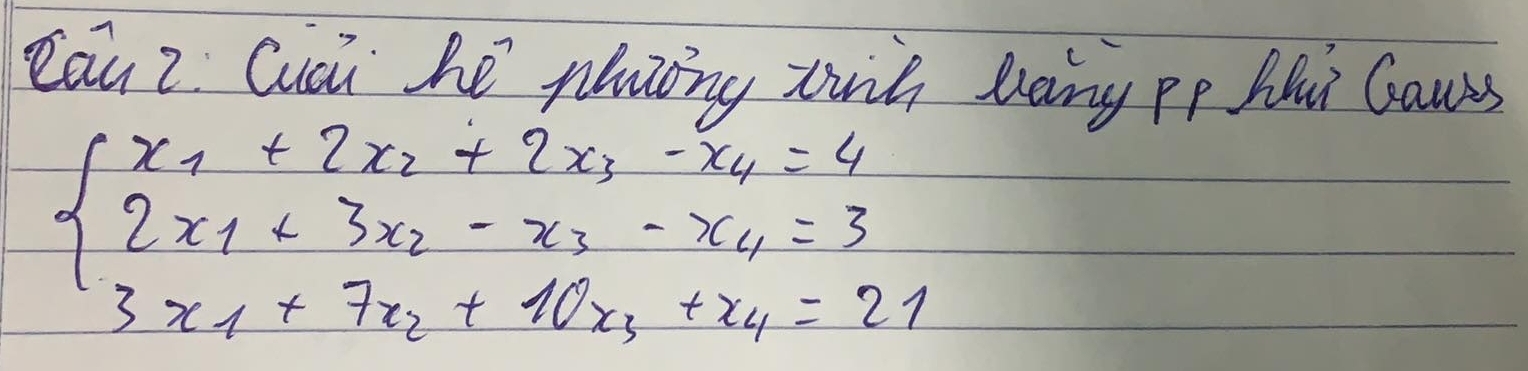 Câu 2: Giải hệ phương trình bằng pp khử Gauss
x1 + 2x2 + 2x3 - x4 = 4
2x1 + 3x2 - x3 - x4 = 3
3x1 + 7x2 + 10x3 + x4 = 21